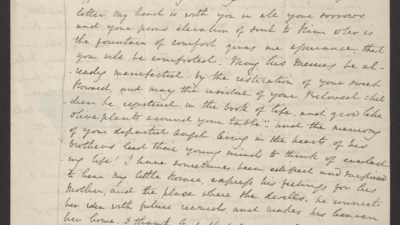 letter. My heart is with you in all your sorrows
and your pious elevation of soul to Him who is
the fountain of comfort gives me assurance, that
you will be comforted. May his Mercies be al-
ready manifested by the restoration of your sweet
Howard, and may the residue of your Beloved chil
dren be registered in the book of life, and grow like
olive plants around your table", and the memory
of your departed Angel living in the hearts of his
brothers lead their young minds to think of everlast
ing life! I have sometimes been and
to hear my little Horace express his feelings for his
Mother, and the place where she dwells. he connects
her idea with future and makes his heaven
her home. I thank